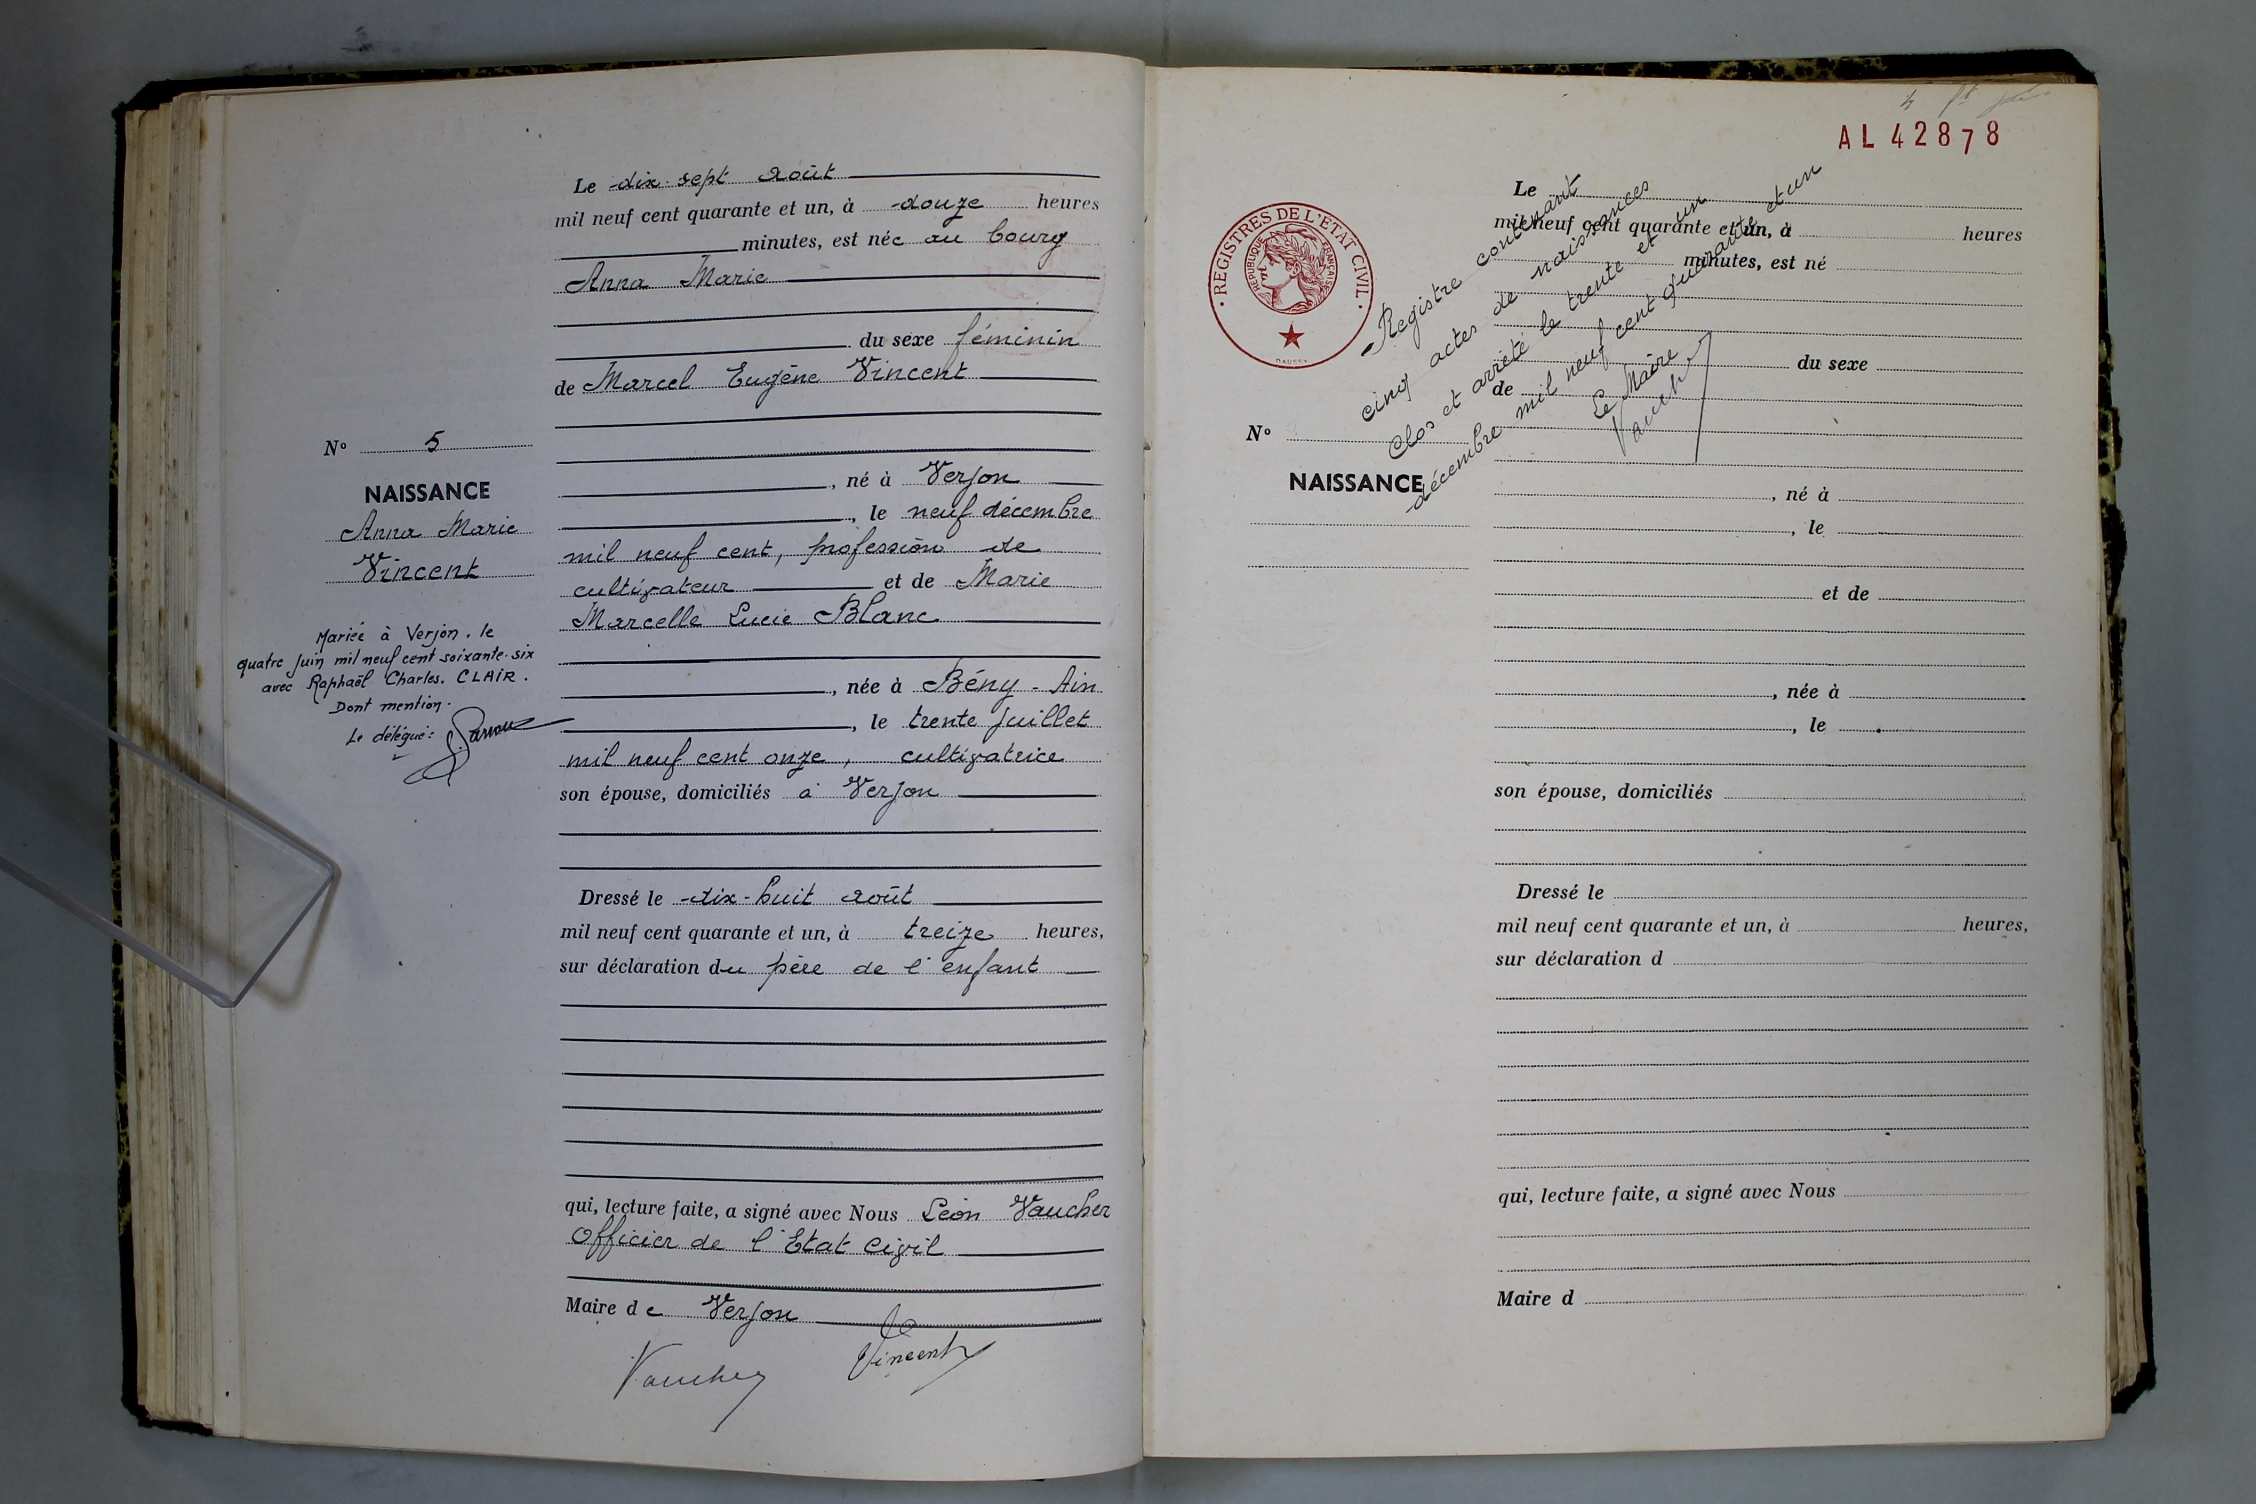 Le dix-sept août
mil neuf cent quarante et un, à douze heures
minutes, est née au bourg
Anna Marie
du sexe féminin
de Marcel Eugène Vincent
, né à Verjon
, le neuf décembre
mil neuf cent, profession de
cultivateur et de Marie
Marcelle Lucie Blanc
, née à Bény-Ain
, le trente juillet
mil neuf cent onze, cultivatrice
son épouse, domiciliés à Verjon
Dressé le dix-huit août
mil neuf cent quarante et un, à treize heures,
sur déclaration du père de l'enfant
qui, lecture faite, a signé avec Nous Léon Vaucher
Officier de l'Etat Civil
Maire de Verjon
Vaucher
Vincent
N° 5
NAISSANCE
Anna Marie
Vincent
Mariée à Verjon. le
quatre Juin mil neuf cent soixante-six
avec Raphaël Charles. CLAIR.
Dont mention.
Le délégué:
AL 42878
REGISTRES DE L'ÉTAT CIVIL
RÉPUBLIQUE FRANÇAISE
Registre contenant
cinq actes de naissances
Clos et arrêté le trente et un
décembre mil neuf cent quarante et un
Le Maire
Vauch
N°
NAISSANCE
Le
mil neuf cent quarante et un, à heures
minutes, est né
du sexe
de
, né à
, le
et de
, née à
, le
son épouse, domiciliés
Dressé le
mil neuf cent quarante et un, à heures,
sur déclaration d
qui, lecture faite, a signé avec Nous
Maire d